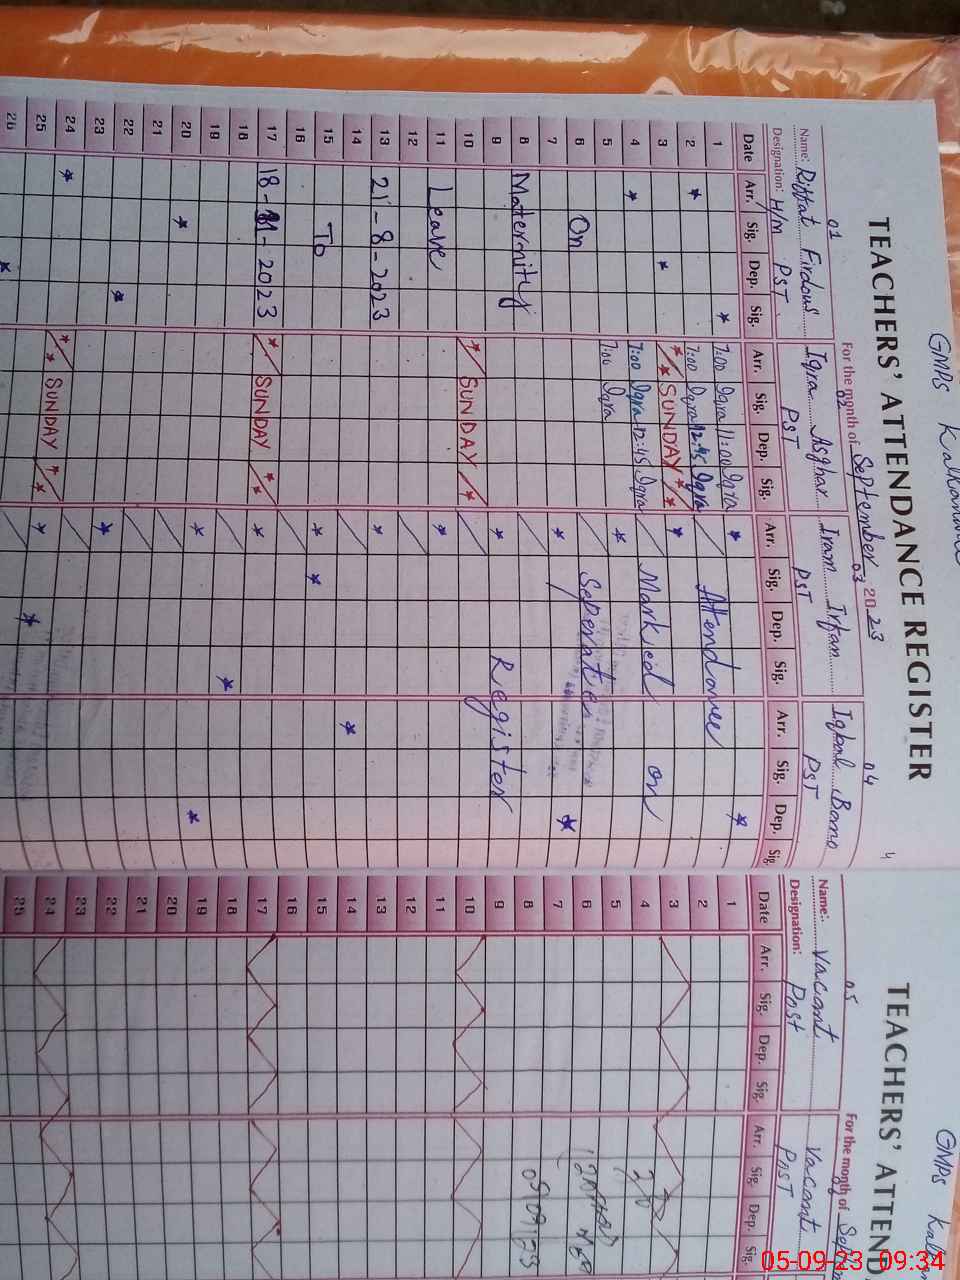 GMPS Kalkanwala
TEACHERS' ATTENDANCE REGISTER
4
For the month of September 2023
01
Name: Riffat Firdous
Designation: H/M PST
02
Iqra Asghar
PST
03
Iram Irfan
PST
04
Iqbal Bano
PST
Date Arr. Sig. Dep. Sig. Arr. Sig. Dep. Sig. Arr. Sig. Dep. Sig. Arr. Sig. Dep. Sig.
1 7:00 Iqra 11:00 Iqra
2 7:00 Iqra 12:45 Iqra Attendance
3 SUNDAY
4 7:00 Iqra 12:45 Iqra Marked on
5 7:00 Iqra
6 On Seperater
7
8 Maternity
9 Register
10 SUNDAY
11 Leave
12
13 21-8-2023
14
15 To
16
17 18-11-2023 SUNDAY
18
19
20
21
22
23
24 SUNDAY
25
26
GMPS
TEACHERS' ATTEND
For the month of
05
Name: Vacant
Designation: Post
Vacant
Post
Date Arr. Sig. Dep. Sig. Arr. Sig. Dep. Sig.
1
2
3
4
5
6
7
8
9
10
11
12
13
14
15
16
17
18
19
20
21
22
23
24
25
05-09-23 09:34